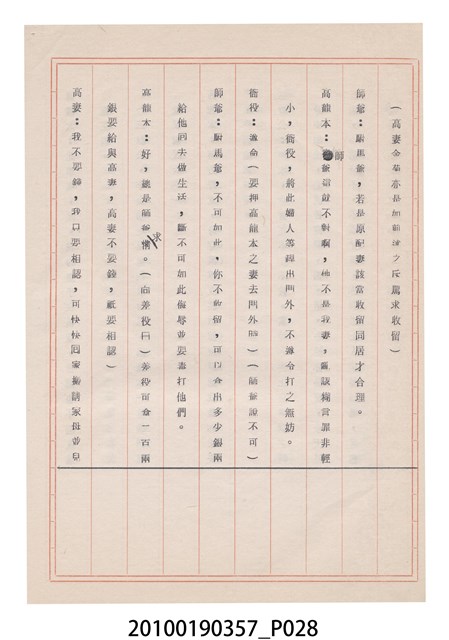 (高妻金菊亦是如前述之反罵求收留)
師爺：駙馬爺，若是原配妻該當收留同居才合理。
高龍本：師爺信就不對啊，她不是我妻，誰該糊言罪非輕
小，衙役，將此婦人等趕出門外，不遵令打之無妨。
衙役：遵命(要押高龍本之妻去門外時)(師爺說不可)
師爺：駙馬爺，不可如此，你不收留，可以拿出多少銀兩
給他回去做生活，斷不可如此侮辱並要毒打他們。
高龍本：好，既是師爺求情。(向差役曰)差役可拿一百兩
銀要給與高妻，高妻不要錢，祇要相認)
高妻：我不要錢，我只要相認，可快快回家攜請家母並兒
20100190357_P028